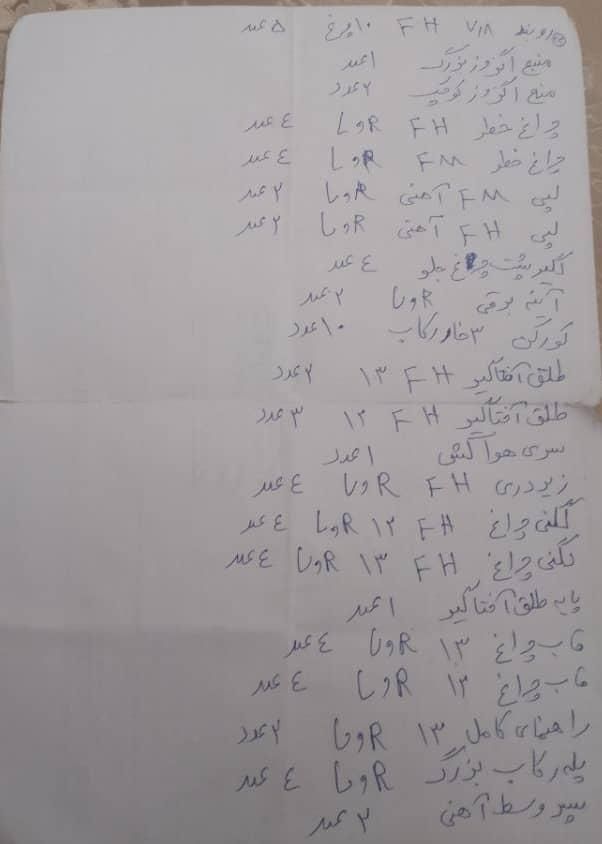 روبند V18 FH ۱۰ پرغ ۵ عدد
منبع اگزوز بزرگ ۱ عدد
منبع اگزوز کوچک ۲ عدد
چراغ خطر FH L و R ٤ عدد
چراغ خطر FM L و R ٤ عدد
لپی FM آهنی L و R ۲ عدد
لپی FH آهنی L و R ۲ عدد
گلگیر پشت چراغ جلو ٤ عدد
آینه بوقی L و R ۲ عدد
کورکن ۳ خار رکاب ۱۰ عدد
طلق آفتاگیر FH ۱۳ ۲ عدد
طلق آفتاگیر FH ۱۲ ۳ عدد
سری هواکش ۱ عدد
زیردری FH L و R ٤ عدد
لگنی چراغ FH ۱۲ L و R ٤ عدد
لگنی چراغ FH ۱۳ L و R ٤ عدد
پایه طلق آفتاگیر ۱ عدد
قاب چراغ ۱۳ L و R ٤ عدد
قاب چراغ ۱۲ L و R ٤ عدد
راهنمای کامل ۱۳ L و R ۲ عدد
پله رکاب بزرگ L و R ٤ عدد
سپر وسط آهنی ۳ عدد